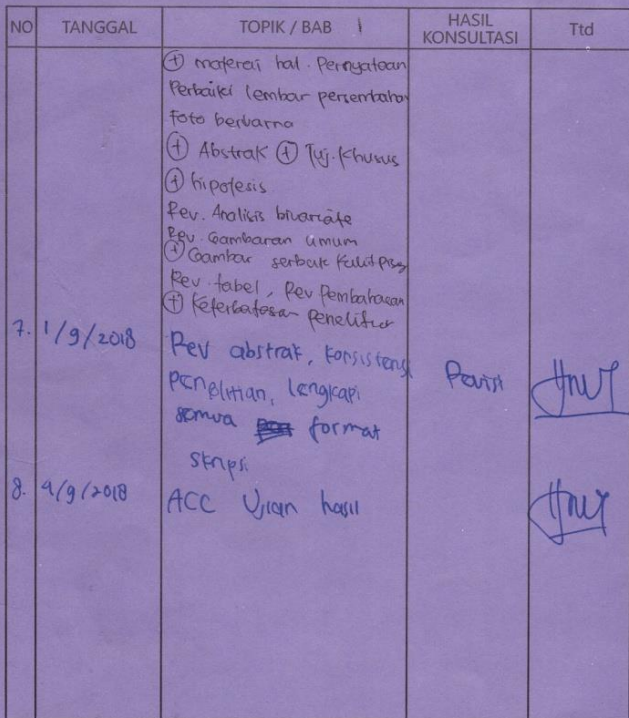 NO TANGGAL TOPIK / BAB HASIL KONSULTASI Ttd
(+) materai hal. Pernyataan
Perbaiki lembar persembahan
Foto berwarna
(+) Abstrak (+) Tuj. Khusus
(+) hipotesis
Rev. Analisis bivariate
Rev. Gambaran umum
(+) Gambar serbuk kulit
Rev. tabel, Rev Pembahasan
(+) Keterbatasan Penelitian
7. 1/9/2018 Rev abstrak, konsistensi Revisi
penelitian, lengkapi
semua format
skripsi
8. 4/9/2018 ACC Ujian hasil